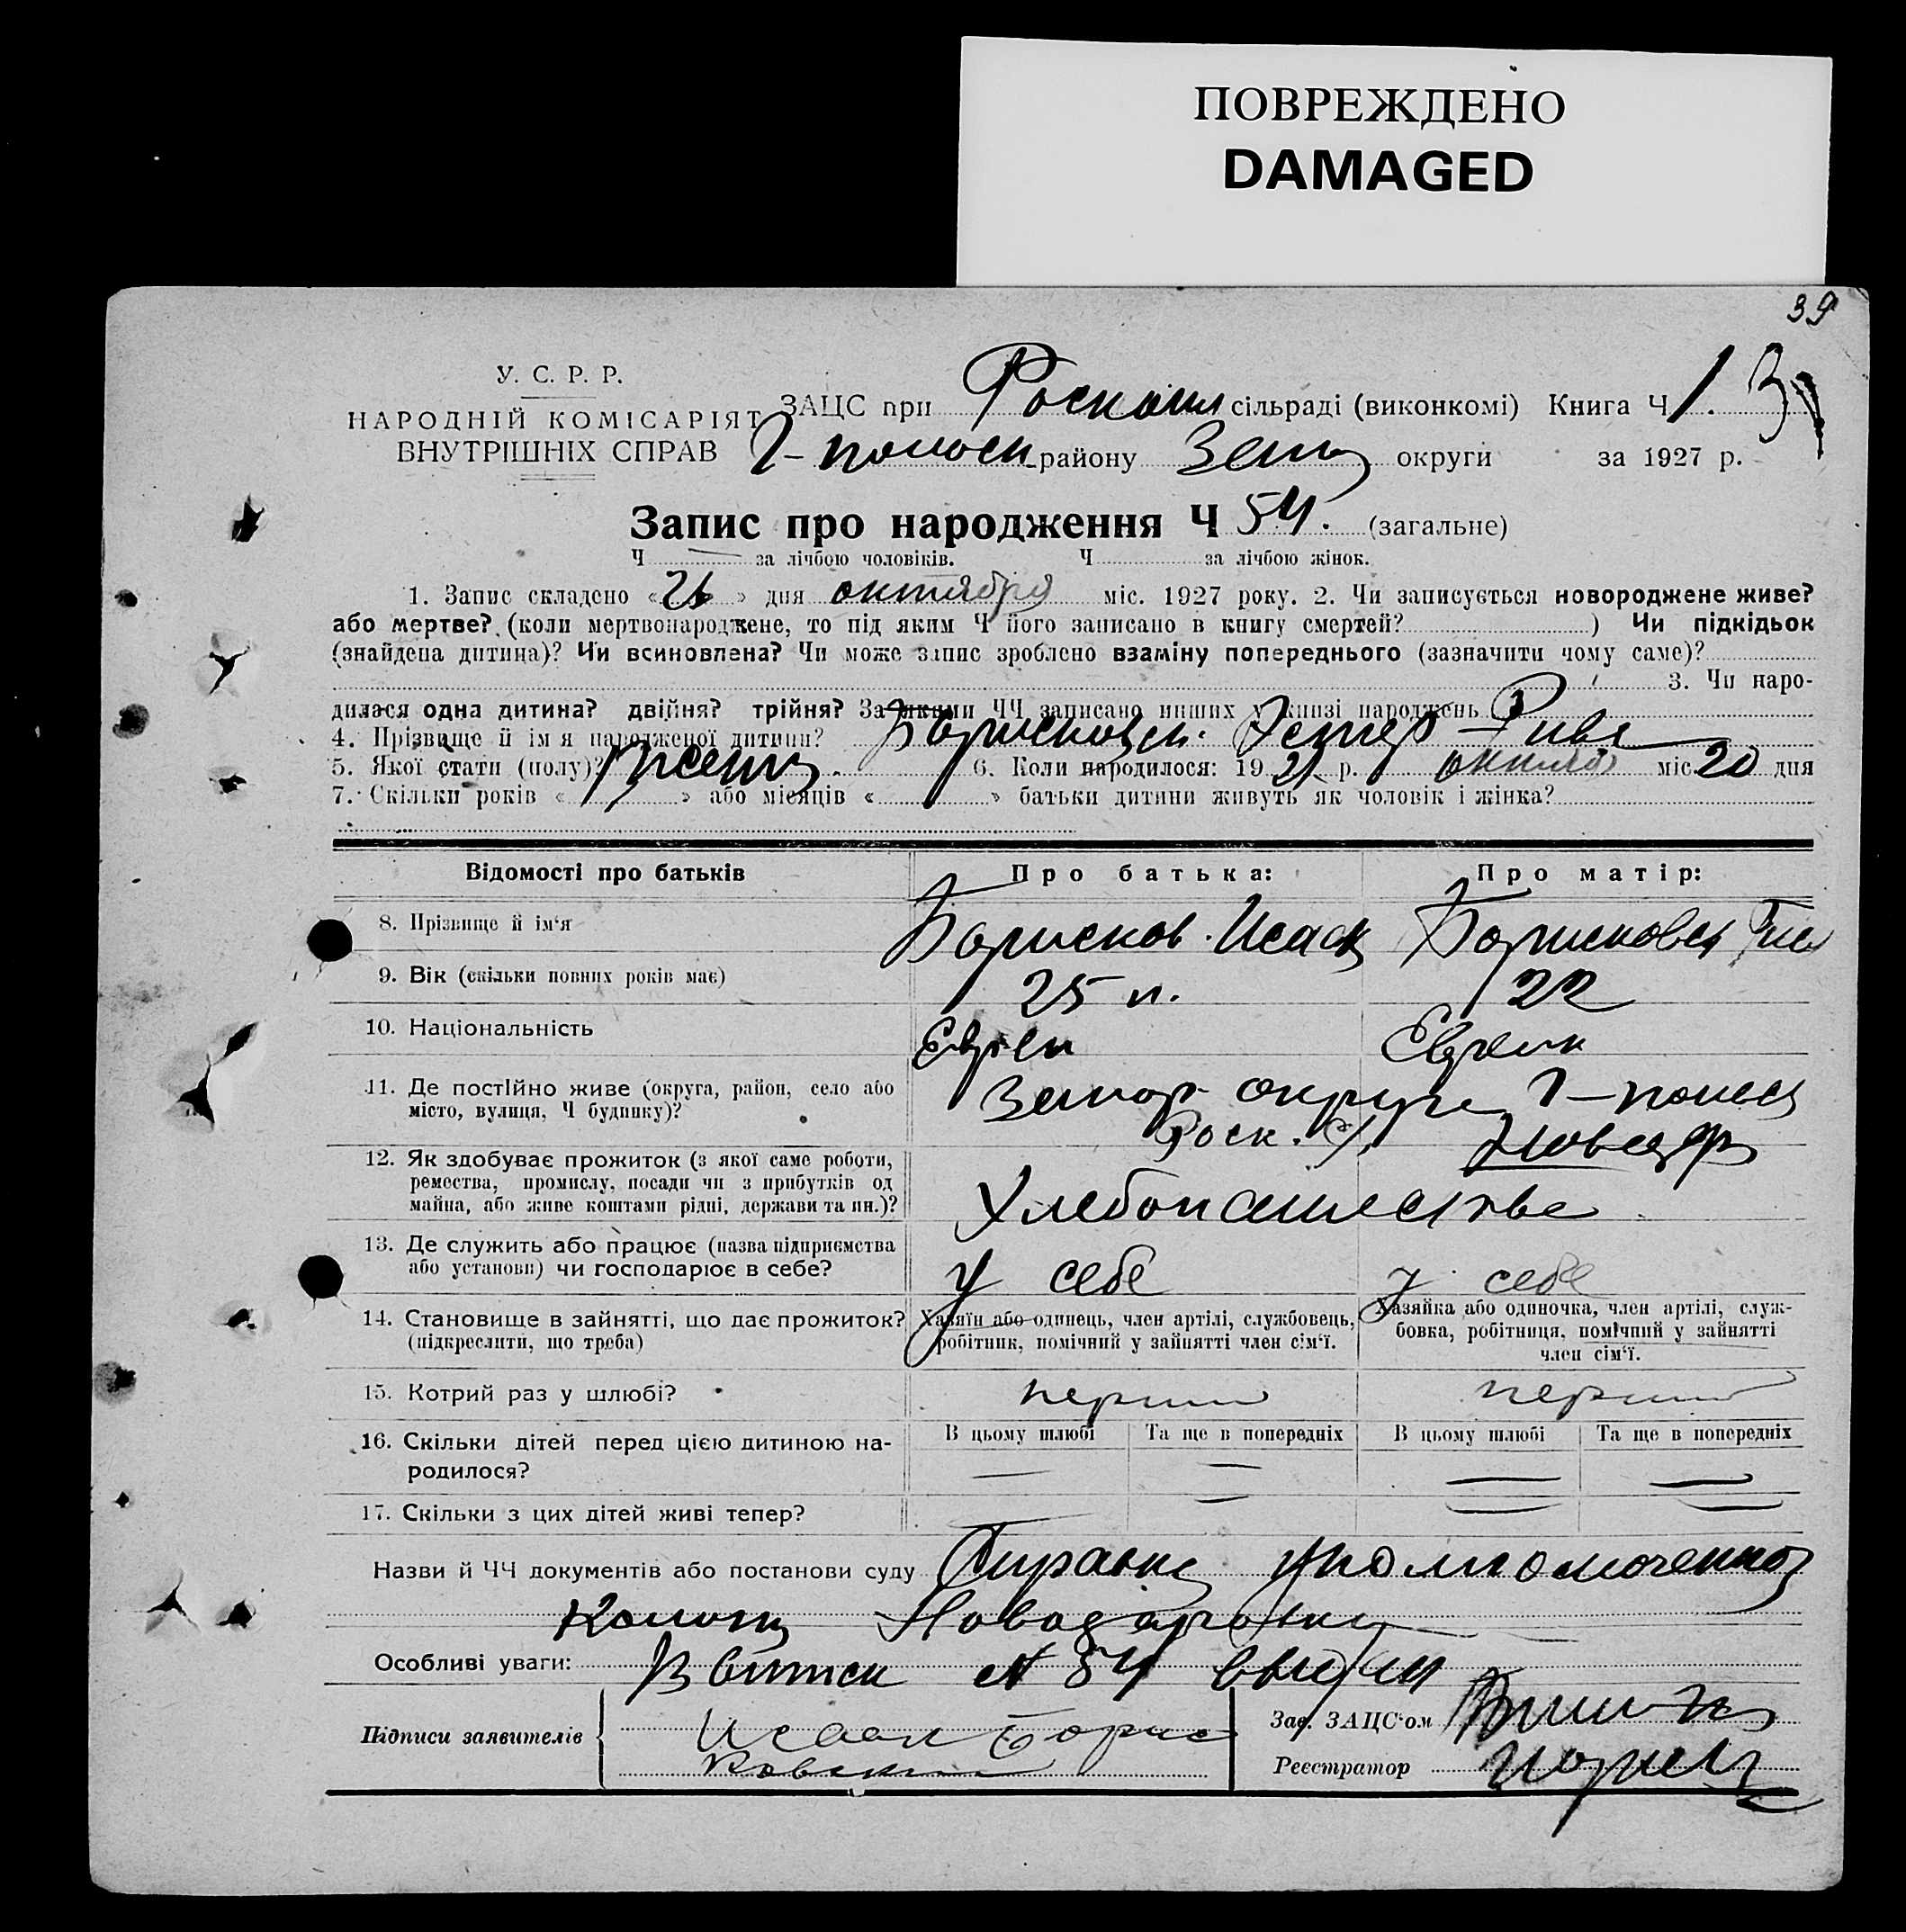 ПОВРЕЖДЕНО
DAMAGED
39
У. С. Р. Р.
НАРОДНІЙ КОМІСАРІЯТ
ВНУТРІШНІХ СПРАВ
ЗАЦС при сільраді (виконкомі) Книга Ч 1.
району округи за 1927 р.
Запис про народження Ч 54. (загальне)
Ч за лічбою чоловіків. Ч за лічбою жінок.
1. Запис складено « 26 » дня октября міс. 1927 року. 2. Чи записується новороджене живе?
або мертве? (коли мертвонароджене, то під яким Ч його записано в книгу смертей? ) Чи підкідьок
(знайдена дитина)? Чи всиновлена? Чи може запис зроблено взаміну попереднього (зазначити чому саме)?
3. Чи наро-
дилася одна дитина? двійня? трійня? За якими ЧЧ записано инших у книзі народжень
4. Прізвище й ім я народженої дитини? Естер - Рива
5. Якої стати (полу)? 6. Коли народилося: 19 р. міс. 20 дня
7. Скільки років « » або місяців « » батьки дитини живуть як чоловік і жінка?
Відомості про батьків Про батька: Про матір:
8. Прізвище й ім'я Борисков. Исаак
9. Вік (скільки повних років має) 25 л. 22
10. Національність Еврей
11. Де постійно живе (округа, район, село або
місто, вулиця, Ч будинку)? Запор округа
12. Як здобуває прожиток (з якої саме роботи,
ремества, промислу, посади чи з прибутків од
майна, або живе коштами рідні, держави та ин.)? Хлебопашества
13. Де служить або працює (назва підприємства
або установи) чи господарює в себе? у себе у себе
14. Становище в зайнятті, що дає прожиток?
(підкреслити, що треба)
Хазяїн або одинець, член артілі, службовець,
робітник, помічний у зайнятті член сім'ї.
Хазяйка або одиночка, член артілі, служ-
бовка, робітниця, помічний у зайнятті
член сім'ї.
15. Котрий раз у шлюбі? перший перший
16. Скільки дітей перед цією дитиною на-
родилося?
В цьому шлюбі Та ще в попередніх В цьому шлюбі Та ще в попередніх
17. Скільки з цих дітей живі тепер?
Назви й ЧЧ документів або постанови суду Справка
Особливі уваги: № 54
Підписи заявителів Исаак Борис
ковский
Зав. ЗАЦС'ом
Реєстратор